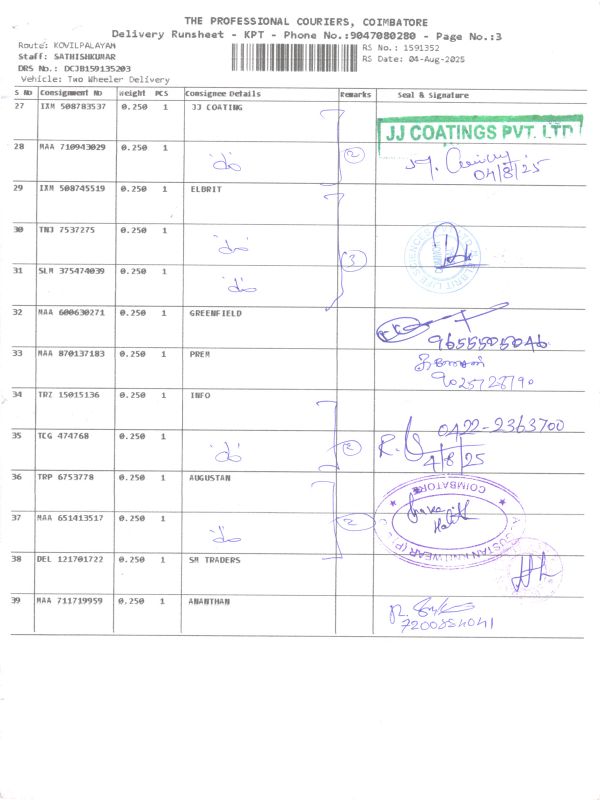 THE PROFESSIONAL COURIERS, COIMBATORE
Delivery Runsheet - KPT - Phone No.:9047080280 - Page No.:3
Route: KOVILPALAYAM
Staff: SATHISHKUMAR
DRS No.: DCJB159135203
Vehicle: Two Wheeler Delivery
RS No.: 1591352
RS Date: 04-Aug-2025
S No Consignment No Weight PCS Consignee Details Remarks Seal & Signature
27 IXM 508783537 0.250 1 JJ COATING
JJ COATINGS PVT. LTD
28 MAA 710943029 0.250 1
"do" 2
04/8/25
29 IXM 508745519 0.250 1 ELBRIT
30 TNJ 7537275 0.250 1
"do" 3
ELBRIT LIFE SCIENCES
31 SLM 375474039 0.250 1
"do"
32 MAA 600630271 0.250 1 GREENFIELD
9655505046
33 MAA 870137183 0.250 1 PREM
34 TRZ 15015136 0.250 1 INFO
0422-2363700
35 TCG 474768 0.250 1
"do" 2
4/8/25
36 TRP 6753778 0.250 1 AUGUSTAN
COIMBATORE
37 MAA 651413517 0.250 1
"do" 2
AUGUSTAN KNITWEAR (P)
38 DEL 121701722 0.250 1 SM TRADERS
39 MAA 711719959 0.250 1 ANANTHAN
7200854041